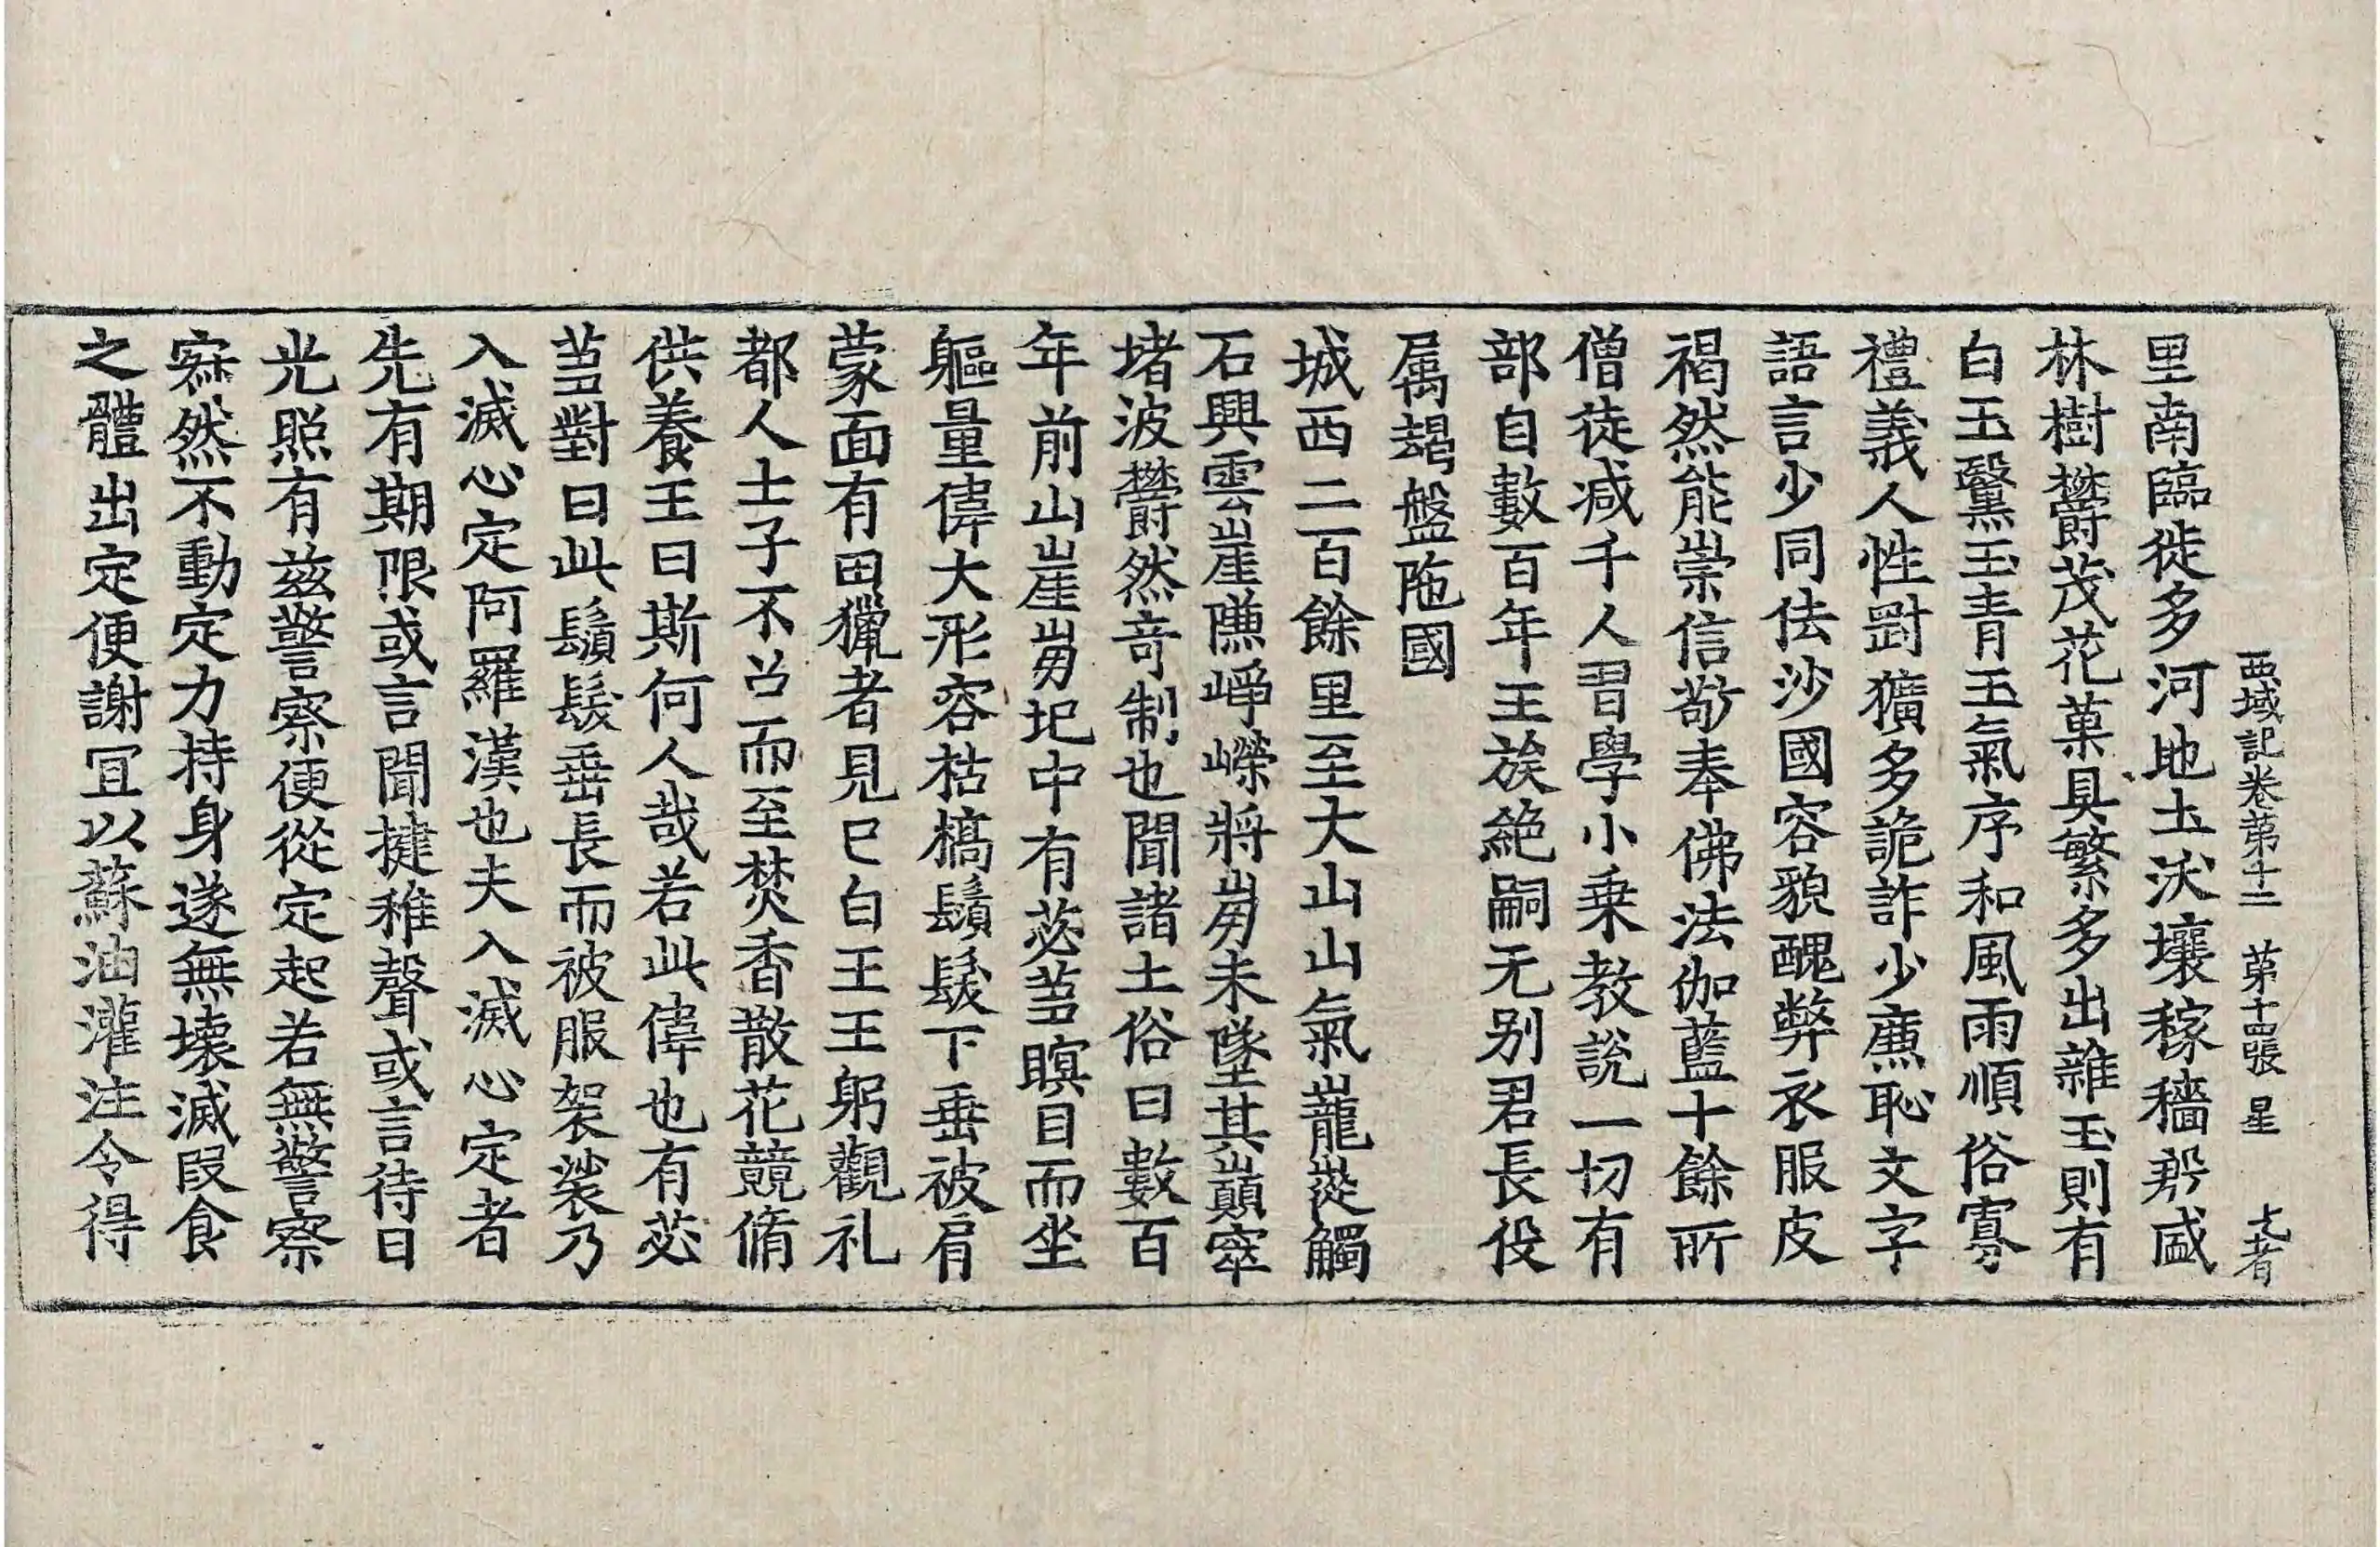 西域記卷苐十二 苐十四張 星 大者
里南臨徙多河地土沃壤稼穡郍盛
林樹欝茂花菓具繁多出雜玉則有
白玉黳玉青玉氣序和風雨順俗寡
禮義人性剛獷多詭詐少㢘恥文字
語言少同佉沙國容貌醜弊衣服皮
褐然能崇信敬奉佛法伽藍十餘所
僧徒减千人習學小乗教說一切有
部自數百年王族絶嗣无别君長役
属朅盤陁國
城西二百餘里至大山山氣巃嵸觸
石興雲崖㠗崢嶸將崩未墜其巓窣
堵波欝然竒制也聞諸土俗曰數百
年前山崖崩圮中有苾蒭瞑目而坐
軀量偉大形容枯槁鬚髮下垂被肩
蒙面有田獵者見已白王王躬觀礼
都人士子不召而至焚香散花競脩
供養王曰斯何人哉若此偉也有苾
蒭對曰此鬚髮垂長而被服袈裟乃
入滅心定阿羅漢也夫入滅心定者
先有期限或言聞揵稚聲或言待日
光照有兹警察便從定起若無警察
寂然不動定力持身遂無壞滅叚食
之體出定便謝冝以蘇油灌注令得